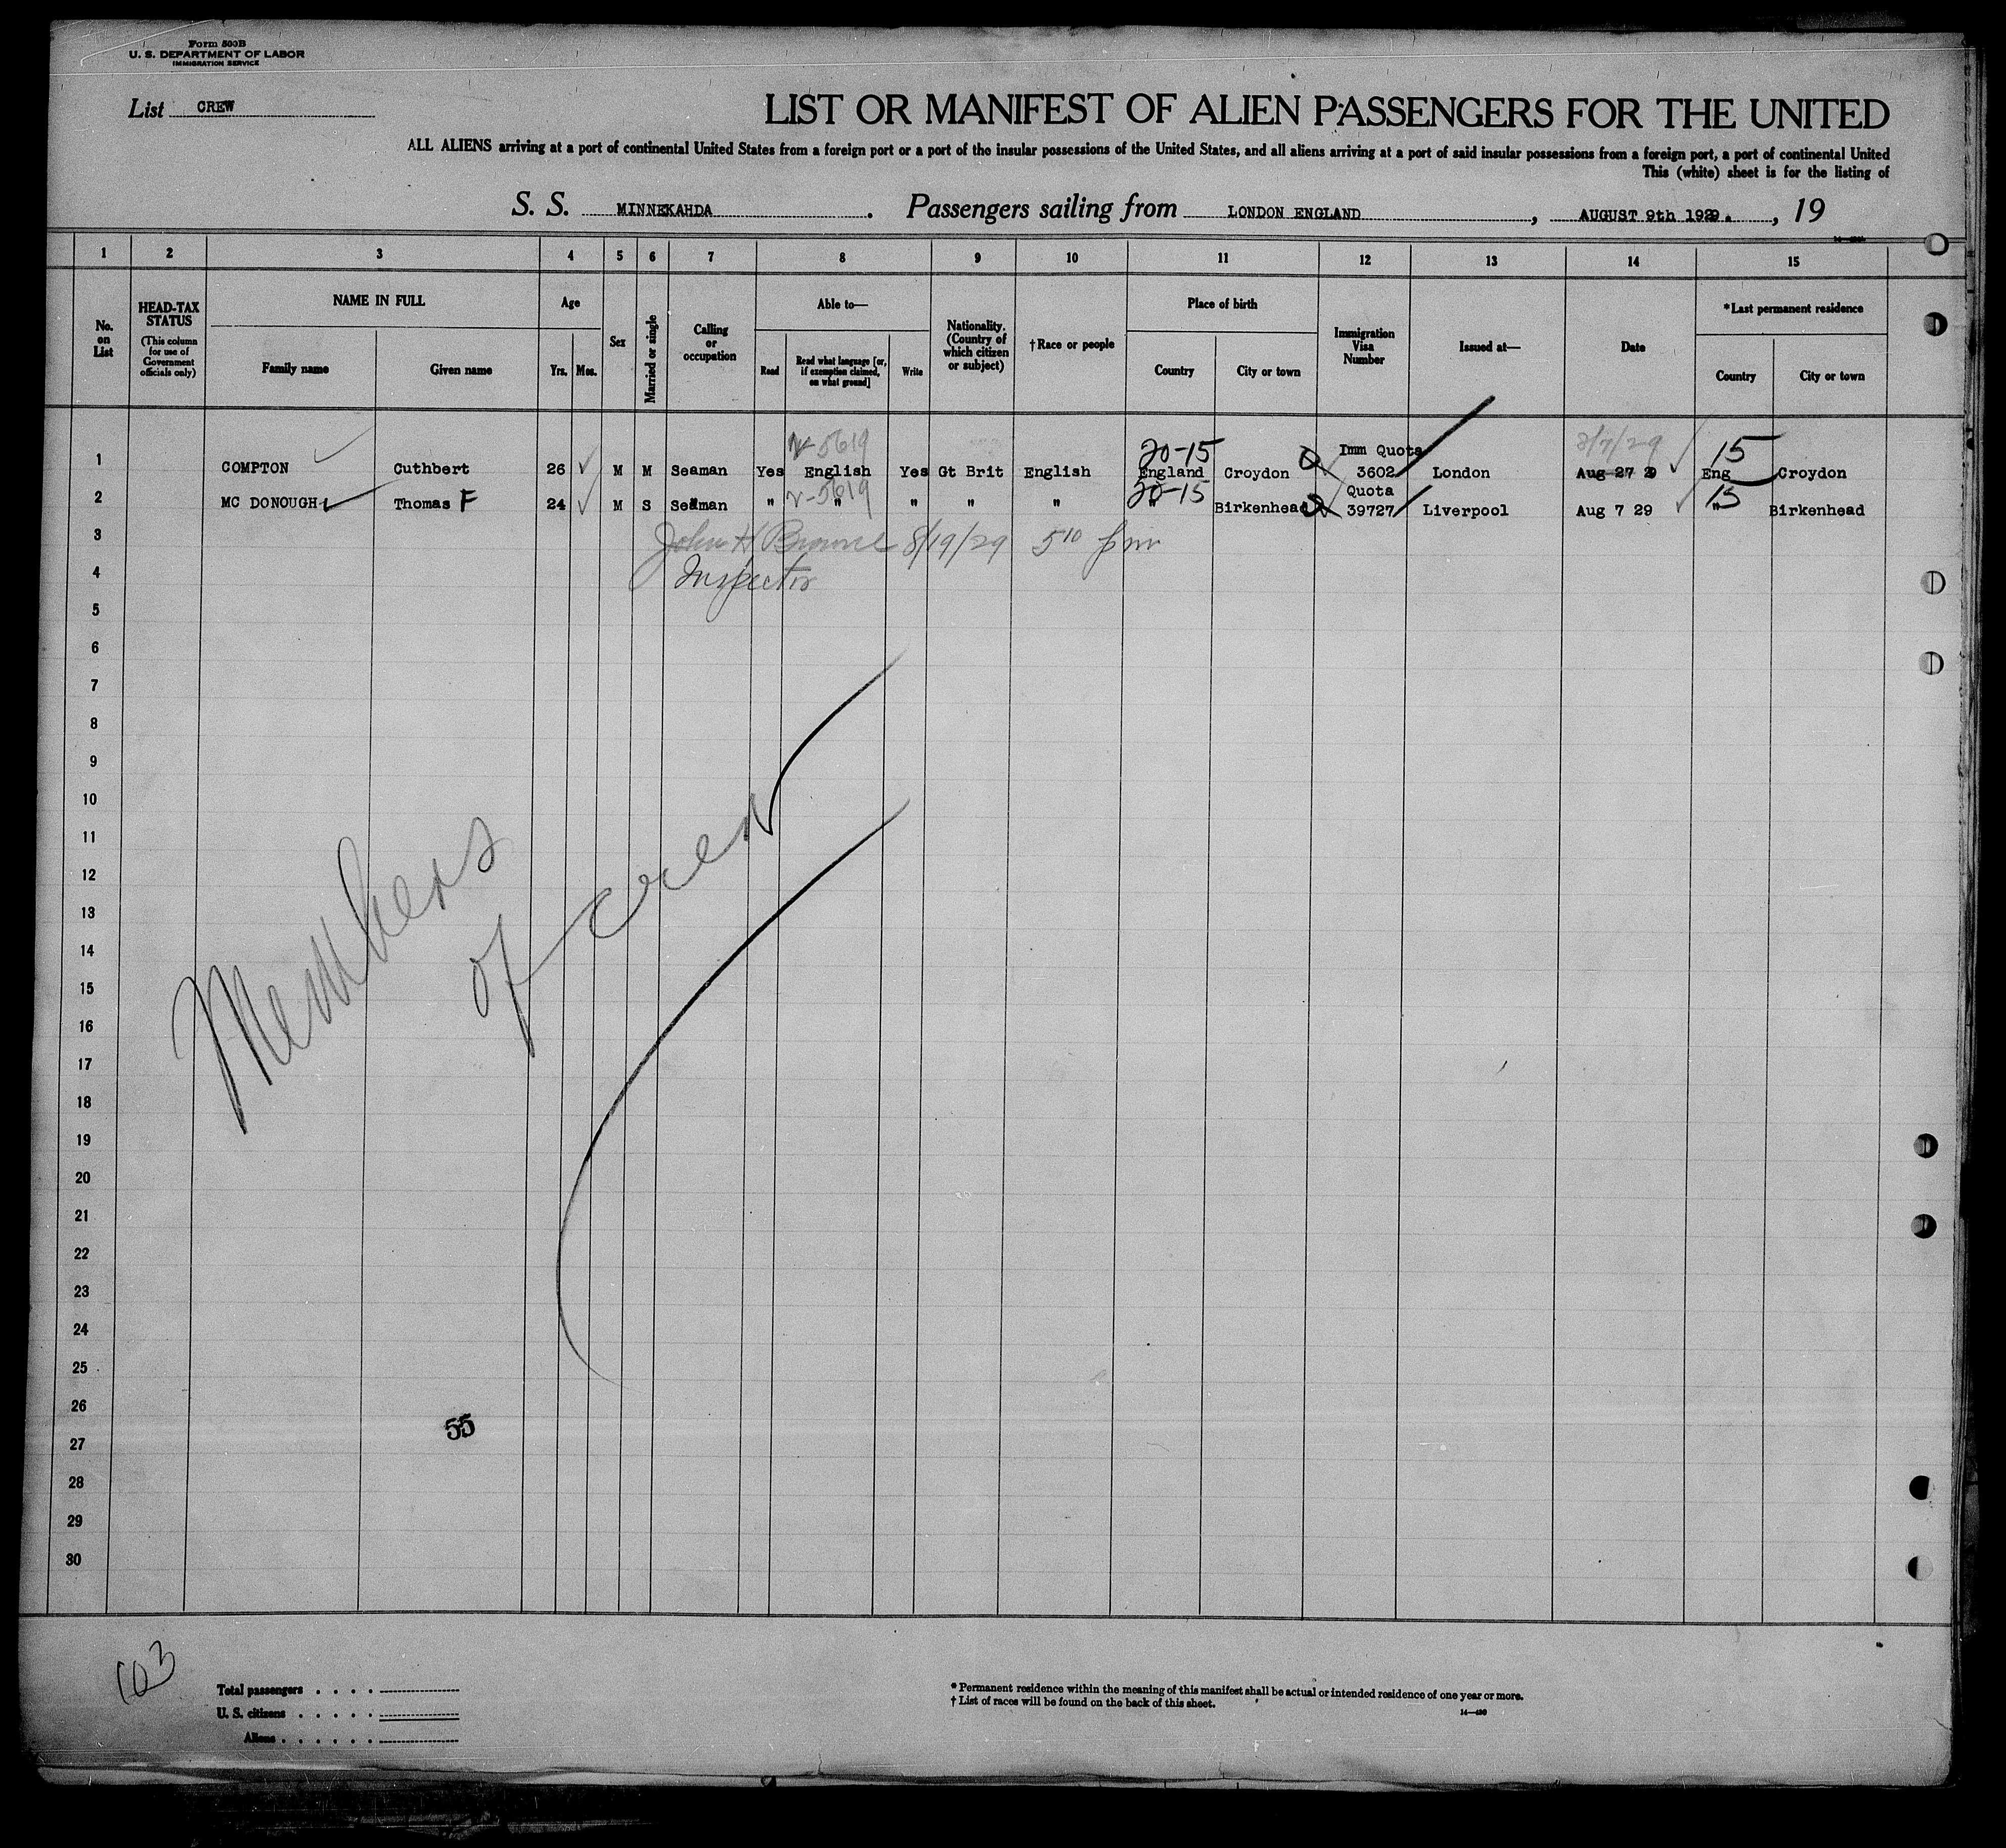 Form 500B
U. S. DEPARTMENT OF LABOR
IMMIGRATION SERVICE
List CREW
LIST OR MANIFEST OF ALIEN PASSENGERS FOR THE UNITED
ALL ALIENS arriving at a port of continental United States from a foreign port or a port of the insular possessions of the United States, and all aliens arriving at a port of said insular possessions from a foreign port, a port of continental United
This (white) sheet is for the listing of
S. S. MINNEKAHDA. Passengers sailing from LONDON ENGLAND, AUGUST 9th 1929., 19
1 2 3 4 5 6 7 8 9 10 11 12 13 14 15
No. on List
HEAD-TAX STATUS
(This column for use of Government officials only)
NAME IN FULL
Family name Given name
Age
Yrs. Mos.
Sex
Married or single
Calling or occupation
Able to—
Read
Read what language [or, if exemption claimed, on what ground]
Write
Nationality. (Country of which citizen or subject)
†Race or people
Place of birth
Country City or town
Immigration Visa Number
Issued at—
Date
*Last permanent residence
Country City or town
v-5619 20-15 Imm Quota 8/7/29 15
1 COMPTON Cuthbert 26 M M Seaman Yes English Yes Gt Brit English England Croydon 3602 London Aug 27 29 Eng Croydon
v-5619 20-15 Quota 15
2 MC DONOUGH Thomas F 24 M S Seaman " " " " " " Birkenhead 39727 Liverpool Aug 7 29 " Birkenhead
3 John H Browne 8/19/29 5 10 pm
4 Inspector
5
6
7
8
9
10
11
12
13
14
15
16
17
18
19
20
21
22
23
24
25
26
27
28
29
30
Members
of crew
55
103
Total passengers . . . .
U. S. citizens . . . . .
Aliens . . . . . .
* Permanent residence within the meaning of this manifest shall be actual or intended residence of one year or more.
† List of races will be found on the back of this sheet.
14—430